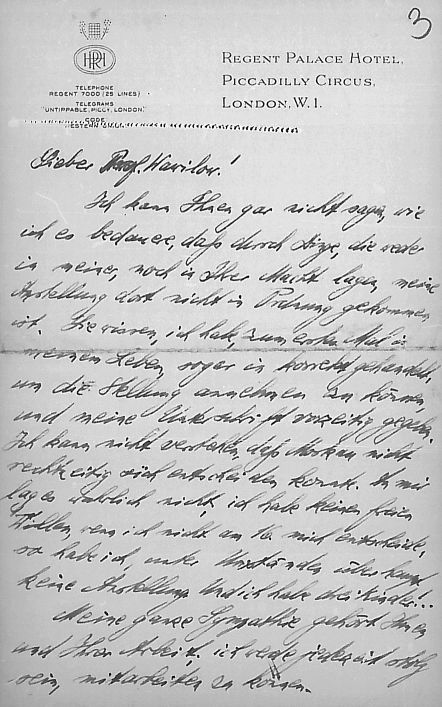 3
HPR
TELEPHONE
REGENT 7000 (25 LINES)
TELEGRAMS
"UNTIPPABLE, PICCY, LONDON."
CODE
WESTERN UNION
REGENT PALACE HOTEL,
PICCADILLY CIRCUS,
LONDON, W.1.
Lieber Prof. Wawilow!
Ich kann Ihnen gar nicht sagen, wie
ich es bedauere, daß durch Dinge, die weder
in meiner, noch in Ihrer Macht lagen, meine
Anstellung dort nicht in Ordnung gekommen
ist. Sie wissen, ich habe, zum ersten Mal in
meinem Leben, sogar inkorrekt gehandelt,
um die Stellung annehmen zu können,
und meine Unterschrift vorzeitig gegeben.
Ich kann nicht verstehen, daß Moskau nicht
rechtzeitig sich entscheiden konnte. An mir
lag es wahrlich nicht, ich habe keinen freien
Willen, wenn ich nicht am 10. mich entscheide,
so habe ich, unter Umständen überhaupt
keine Anstellung. Und ich habe drei Kinder!..
Meine ganze Sympathie gehört Ihnen
und Ihrer Arbeit, ich werde jederzeit stolz
sein, mitarbeiten zu können.